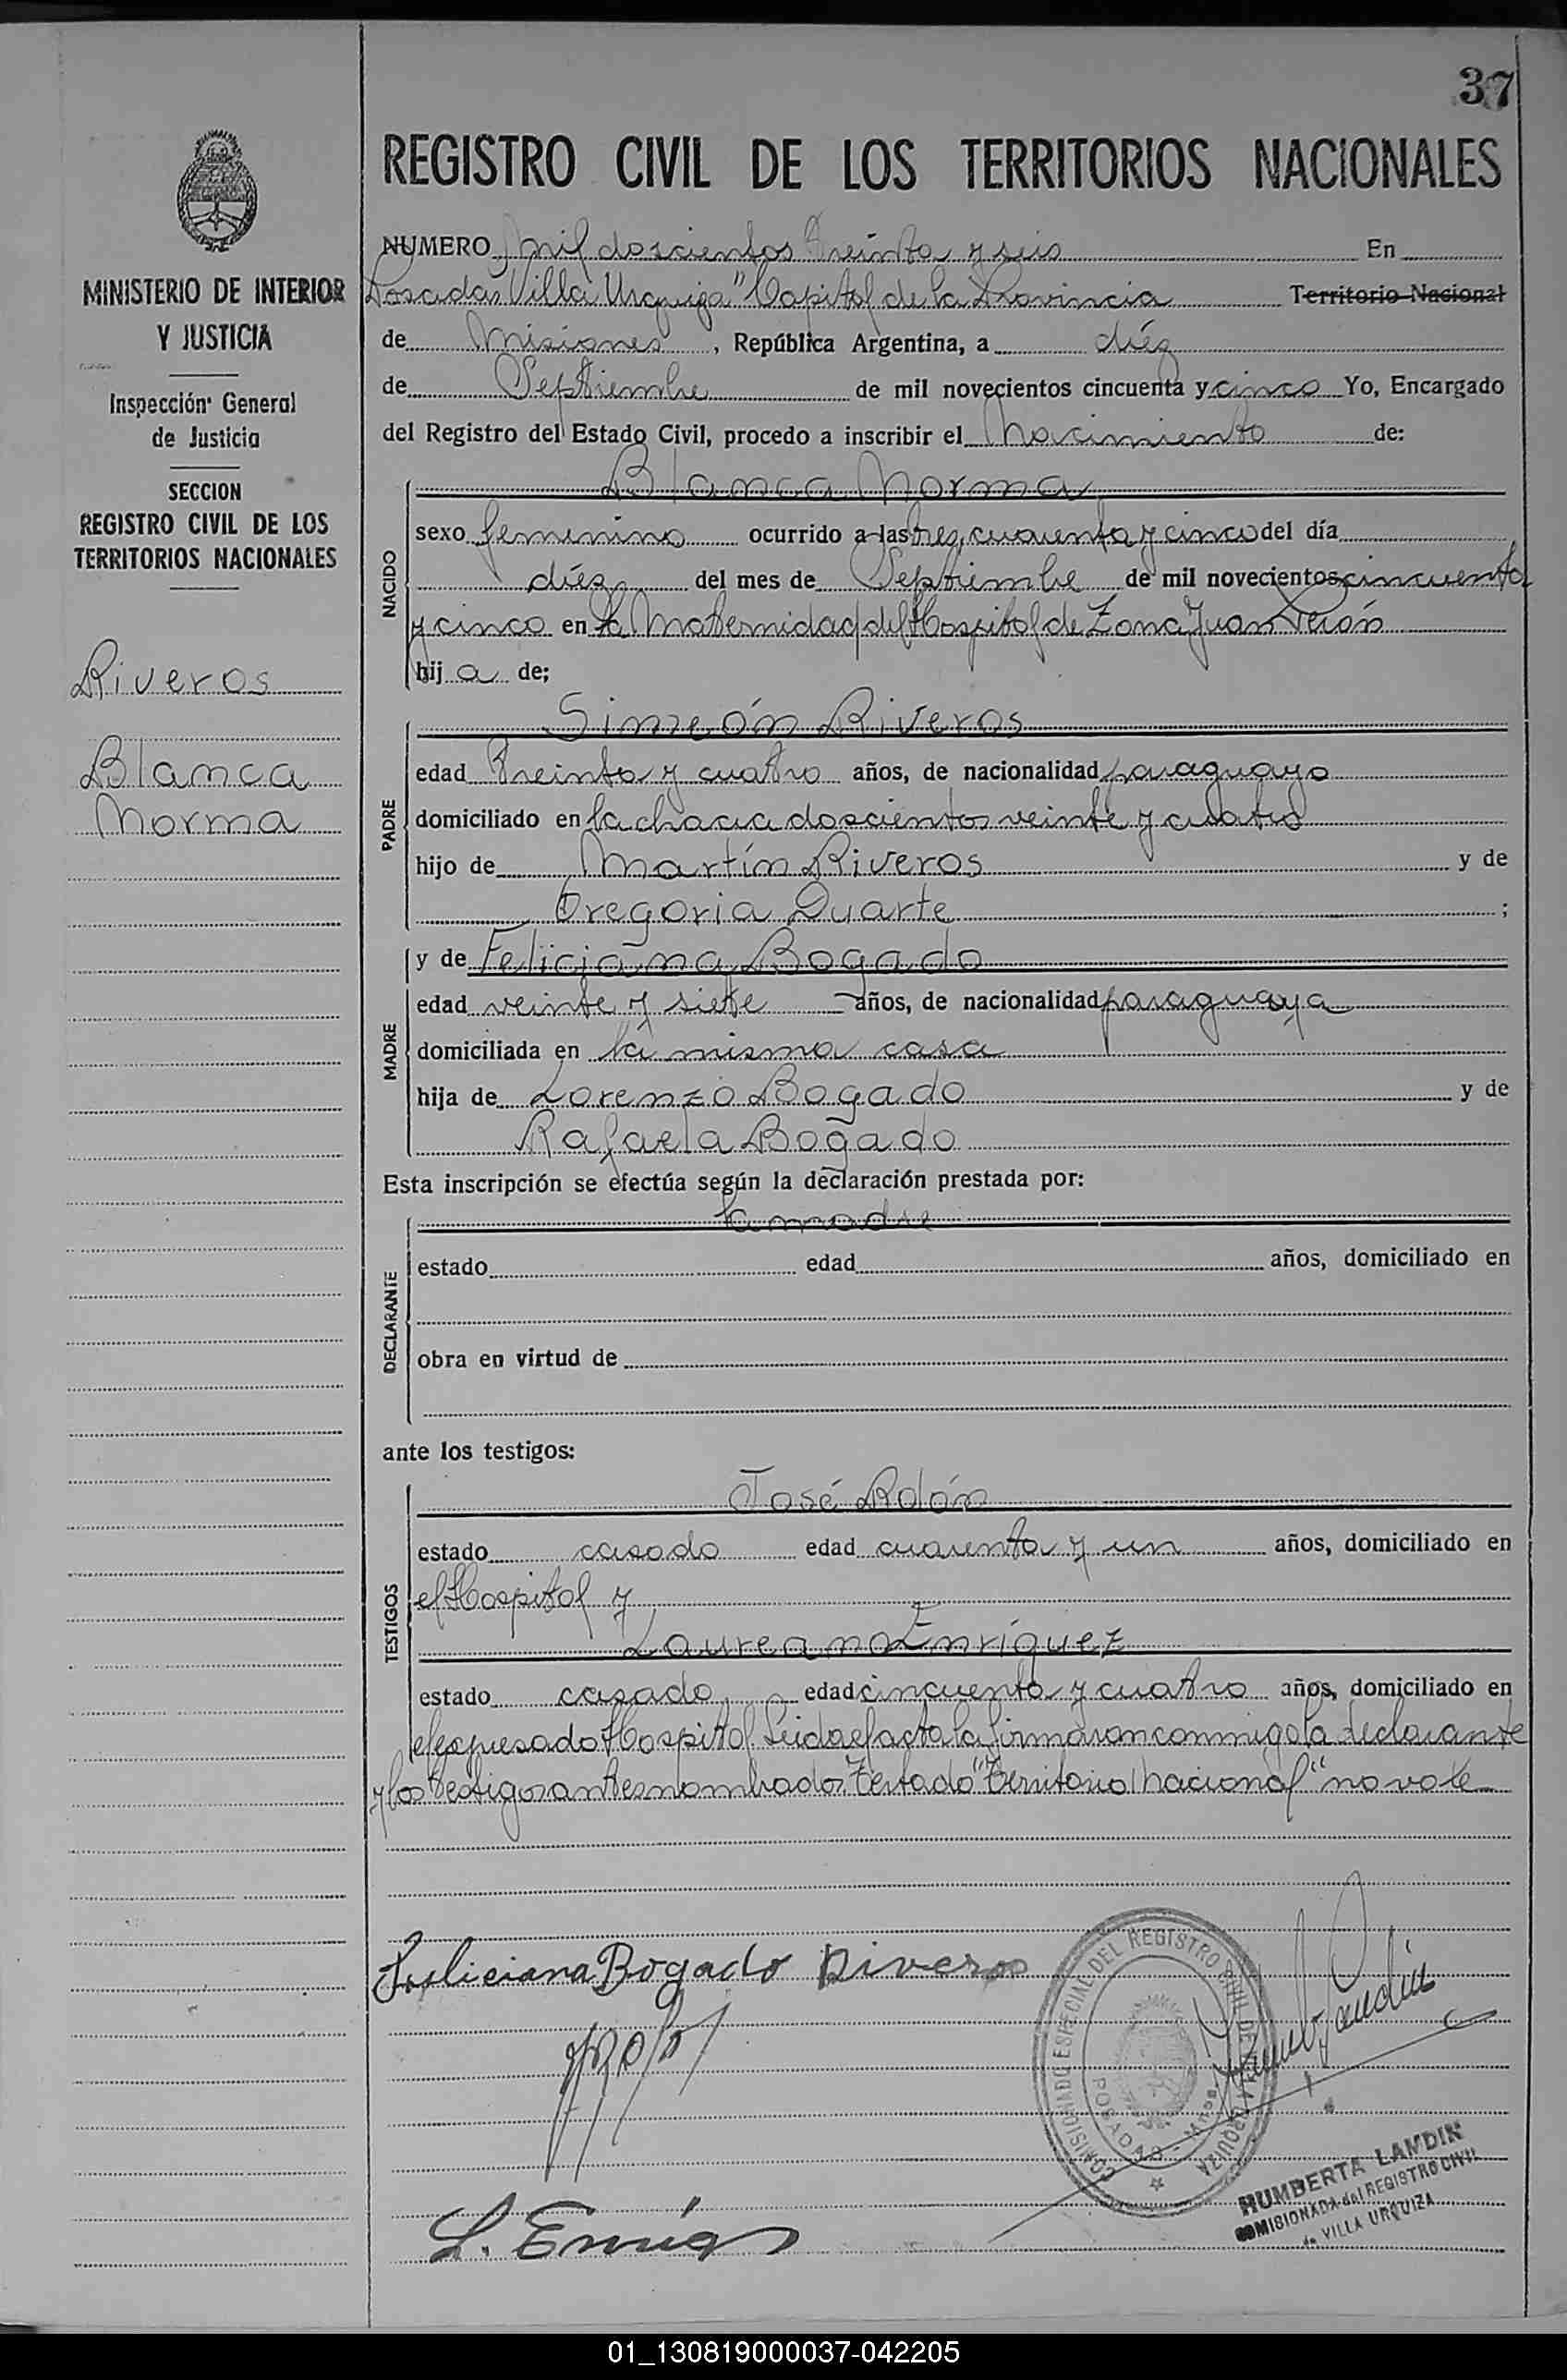 37
REGISTRO CIVIL DE LOS TERRITORIOS NACIONALES
MINISTERIO DE INTERIOR
Y JUSTICIA
Inspección General
de Justicia
SECCION
REGISTRO CIVIL DE LOS
TERRITORIOS NACIONALES
Riveros
Blanca
Norma
NUMERO Mil doscientos treinta y seis En
Posadas "Villa Urquiza" Capital de la Provincia Territorio Nacional
de Misiones, República Argentina, a diéz
de Septiembre de mil novecientos cincuenta y cinco Yo, Encargado
del Registro del Estado Civil, procedo a inscribir el Nacimiento de:
NACIDO
Blanca Norma
sexo femenino ocurrido a las tres, cuarenta y cinco del día
diéz del mes de Septiembre de mil novecientos cincuenta
y cinco en la Maternidad del Hospital de Zona Juan Perón
hija de;
PADRE
Simeón Riveros
edad treinta y cuatro años, de nacionalidad paraguayo
domiciliado en la chacra doscientos veinte y cuatro
hijo de Martín Riveros y de
Gregoria Duarte ;
MADRE
y de Feliciana Bogado
edad veinte y siete años, de nacionalidad paraguaya
domiciliada en la misma casa
hija de Lorenzo Bogado y de
Rafaela Bogado
Esta inscripción se efectúa según la declaración prestada por:
DECLARANTE
la madre
estado edad años, domiciliado en
obra en virtud de
ante los testigos:
TESTIGOS
José Rolón
estado casado edad cuarenta y un años, domiciliado en
el Hospital y
Laureano Enríquez
estado casado, edad cincuenta y cuatro años, domiciliado en
el expresado Hospital Leida el acta la firmaron conmigo la declarante
y los testigos antes nombrados. Testado "Territorio Nacional" no vale
Feliciana Bogado Riveros
COMISIONADO ESPECIAL DEL REGISTRO CIVIL DE VILLA URQUIZA
POSADAS - Mnes.
L. Enriq
HUMBERTA LANDIN
COMISIONADA del REGISTRO CIVIL
de VILLA URQUIZA
01_130819000037-042205